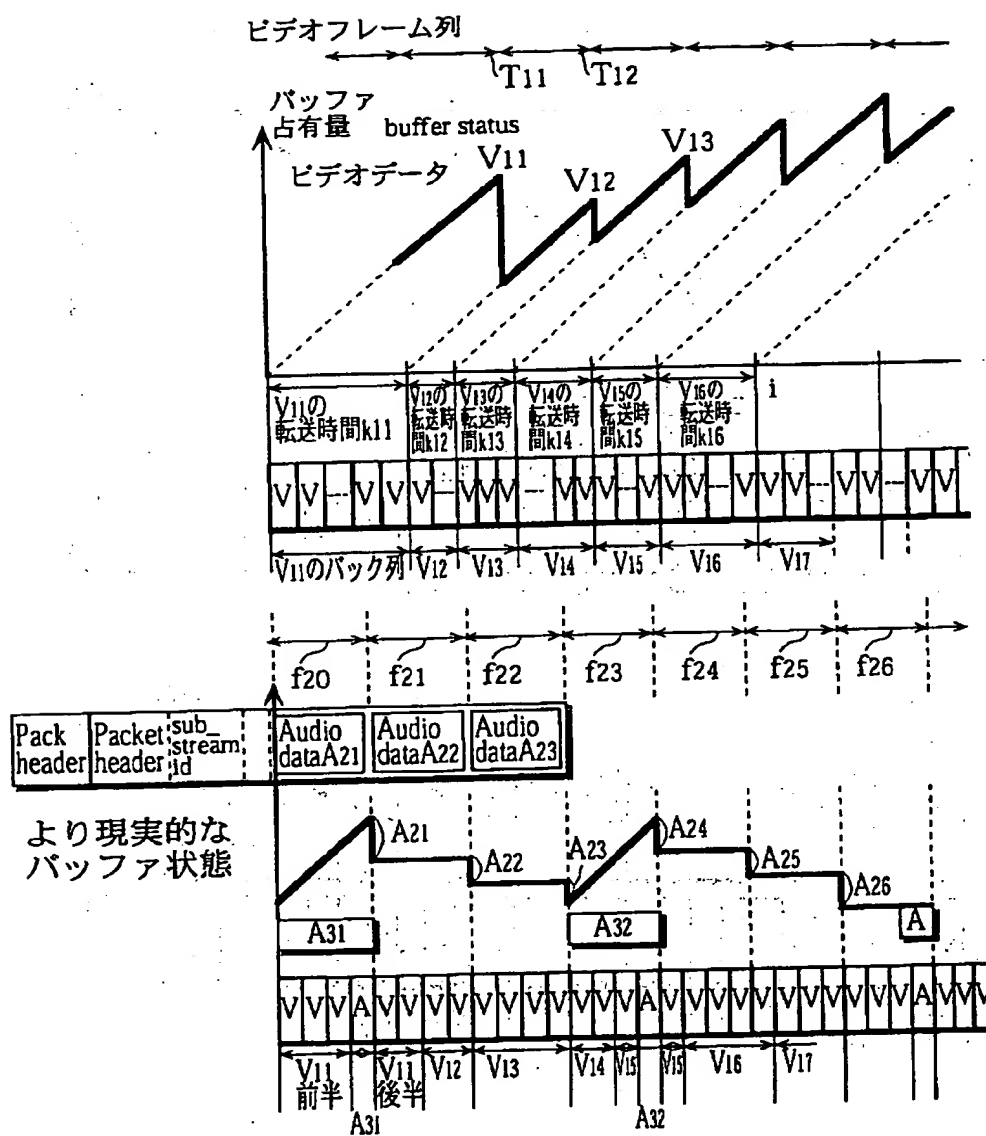 ビデオフレーム列
T11 T12
バッファ
占有量 buffer status
ビデオデータ
V11
V12
V13
V11の
転送時間k11
V12の
転送時
間k12
V13の
転送時
間k13
V14の
転送時
間k14
V15の
転送時
間k15
V16の
転送時
間k16
i
V V --- V V V --- V V V --- V V V --- V V V --- V V V --- V V --- V V
V11のパック列 V12 V13 V14 V15 V16 V17
f20 f21 f22 f23 f24 f25 f26
Pack
header
Packet
header
sub_
stream
id
Audio
dataA21
Audio
dataA22
Audio
dataA23
より現実的な
バッファ状態
A21
A22
A23
A24
A25
A26
A31
A32
A
V V V A V V V V V V V V V V V A V V V V V V V V V V A V V V
V11
前半
V11
後半
V12 V13 V14 V15 V15 V16 V17
A31 A32